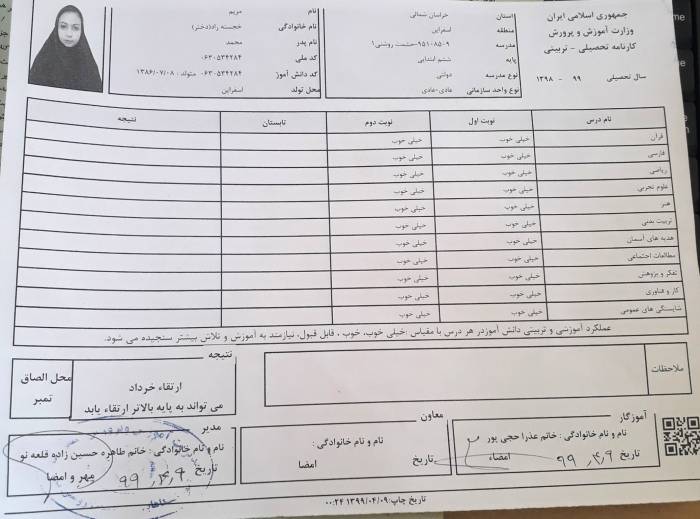 جمهوری اسلامی ایران
وزارت آموزش و پرورش
کارنامه تحصیلی - تربیتی
سال تحصیلی ۹۹ - ۱۳۹۸
استان خراسان شمالی
منطقه اسفراین
مدرسه ۹۵۱۰۸۵۰۹-حشمت روشنی۱
پایه ششم ابتدایی
نوع مدرسه دولتی
نوع واحد سازمانی عادی-عادی
نام مریم
نام خانوادگی خجسته راد(دختر)
نام پدر محمد
کد ملی ۰۶۳۰۵۳۴۲۸۴
کد دانش آموز ۰۶۳۰۵۳۴۲۸۴ متولد : ۱۳۸۶/۰۷/۰۸
محل تولد اسفراین
نام درس نوبت اول نوبت دوم تابستان نتیجه
قرآن خیلی خوب خیلی خوب
فارسی خیلی خوب خیلی خوب
ریاضی خیلی خوب خیلی خوب
علوم تجربی خیلی خوب خیلی خوب
هنر خیلی خوب خیلی خوب
تربیت بدنی خیلی خوب خیلی خوب
هدیه های آسمان خیلی خوب خیلی خوب
مطالعات اجتماعی خیلی خوب خیلی خوب
تفکر و پژوهش خیلی خوب خیلی خوب
کار و فناوری خیلی خوب خیلی خوب
شایستگی های عمومی خیلی خوب خیلی خوب
عملکرد آموزشی و تربیتی دانش آموزدر هر درس با مقیاس :خیلی خوب، خوب ، قابل قبول، نیازمند به آموزش و تلاش بیشتر سنجیده می شود.
ملاحظات
نتیجه
ارتقاء خرداد
می تواند به پایه بالاتر ارتقاء یابد
محل الصاق
تمبر
آموزگار
نام و نام خانوادگی : خانم عذرا حجی پور
تاریخ ۹۹,۴,۹ امضاء
معاون
نام و نام خانوادگی :
تاریخ امضا
مدیر
نام و نام خانوادگی : خانم طاهره حسین زاده قلعه نو
تاریخ ۹۹,۴,۹ مهر و امضا
تاریخ چاپ:۱۳۹۹/۰۴/۰۹ ۰۰:۲۴